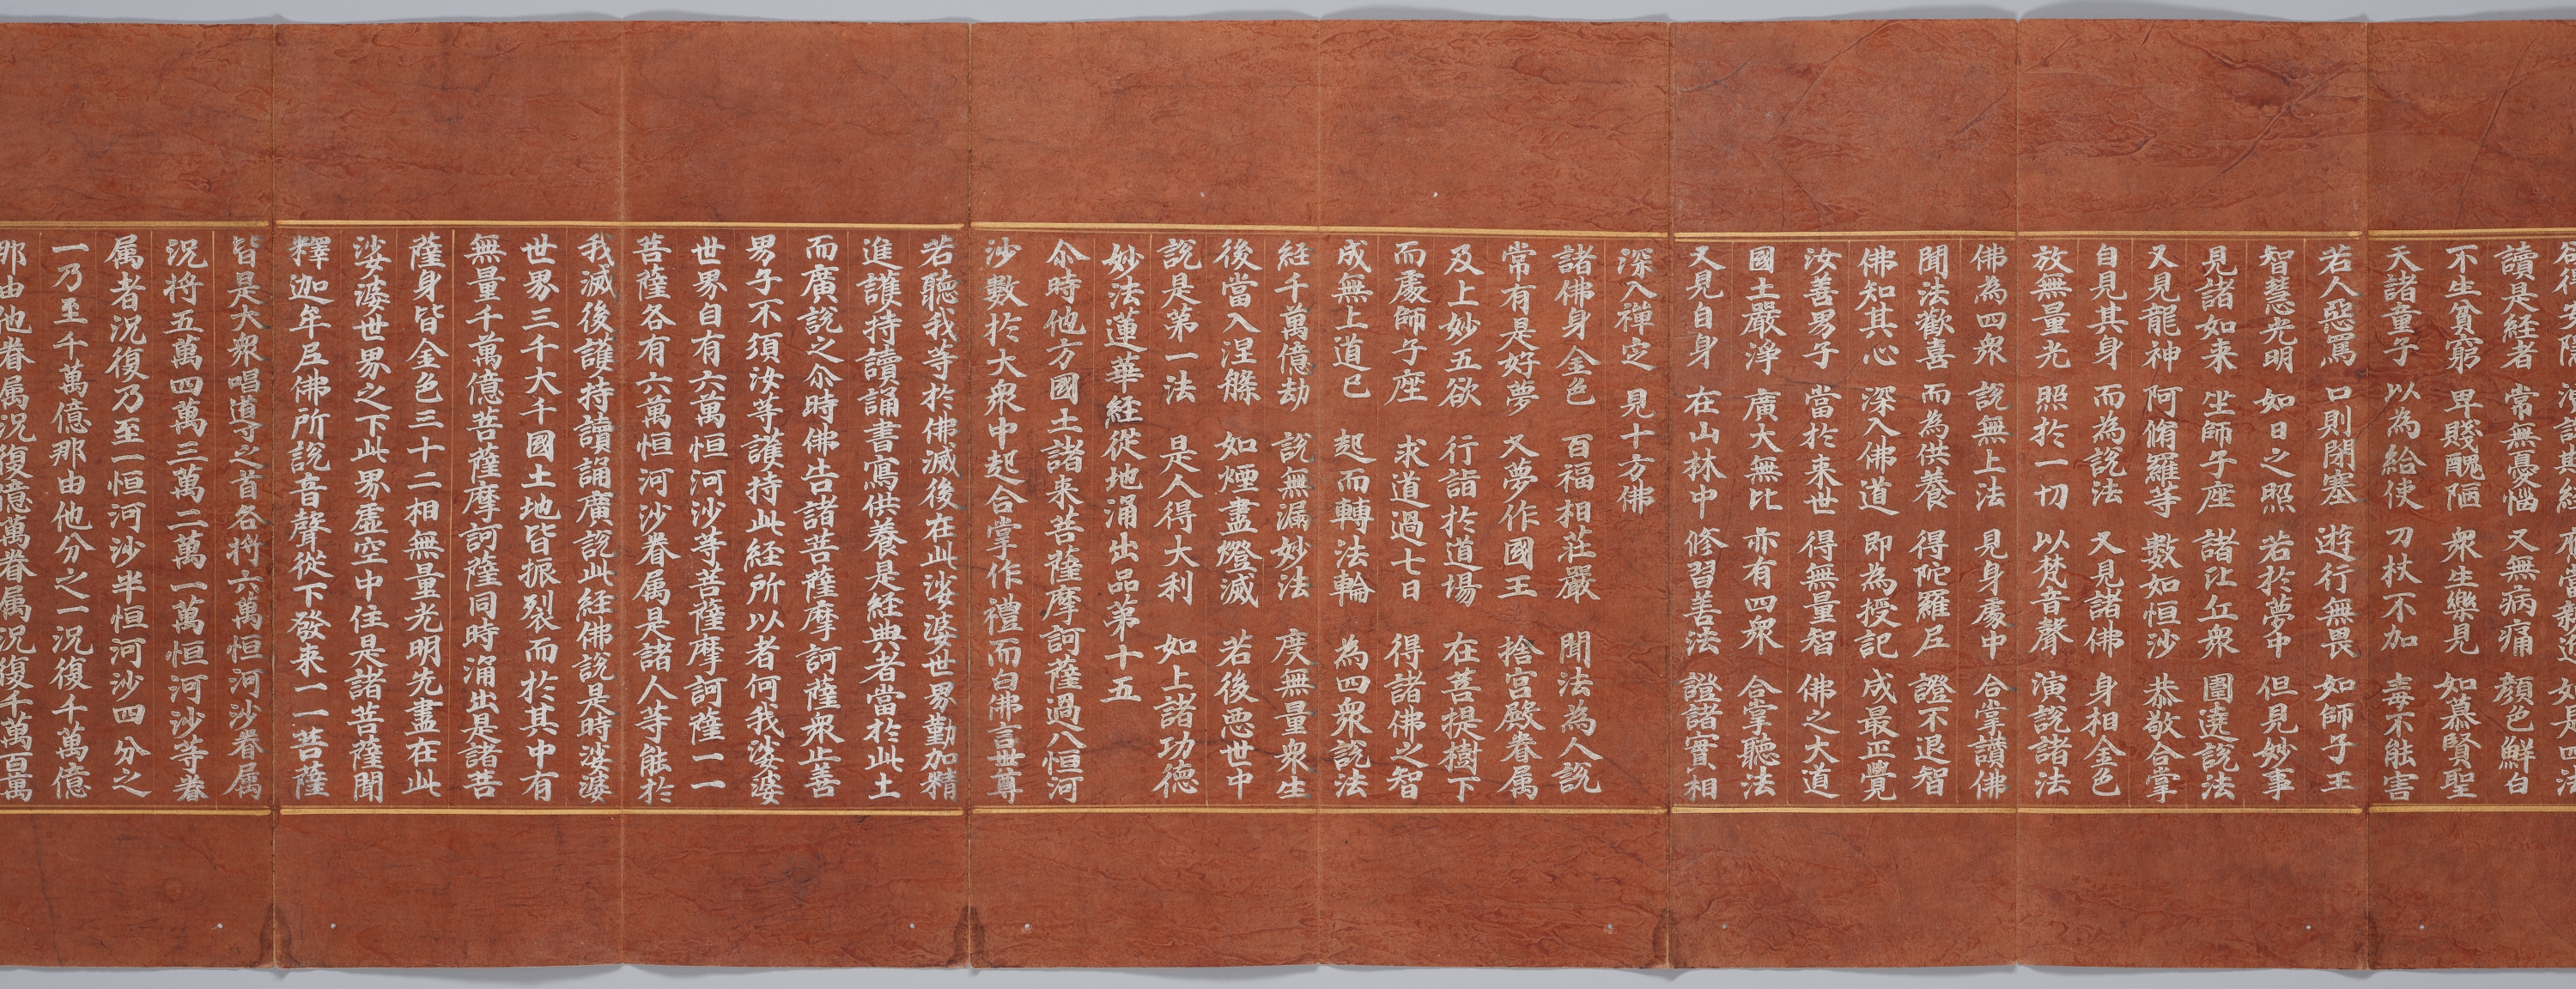 讀是經者　常無憂惱　又無病痛　顏色鮮白
不生貧窮　卑賤醜陋　衆生樂見　如慕賢聖
天諸童子　以為給使　刀杖不加　毒不能害
若人惡罵　口則閉塞　遊行無畏　如師子王
智慧光明　如日之照　若於夢中　但見妙事
見諸如来　坐師子座　諸比丘衆　圍遶説法
又見龍神　阿脩羅等　數如恒沙　恭敬合掌
自見其身　而為説法　又見諸佛　身相金色
放無量光　照於一切　以梵音聲　演説諸法
佛為四衆　説無上法　見身處中　合掌讃佛
聞法歡喜　而為供養　得陀羅尼　證不退智
佛知其心　深入佛道　即為授記　成最正覺
汝善男子　當於来世　得無量智　佛之大道
國土嚴淨　廣大無比　亦有四衆　合掌聽法
又見自身　在山林中　修習善法　證諸實相
深入禪定　見十方佛
諸佛身金色　百福相莊嚴　聞法為人説
常有是好夢　又夢作國王　捨宮殿眷属
及上妙五欲　行詣於道場　在菩提樹下
而處師子座　求道過七日　得諸佛之智
成無上道已　起而轉法輪　為四衆説法
経千萬億劫　説無漏妙法　度無量衆生
後當入涅槃　如煙盡燈滅　若後惡世中
説是第一法　是人得大利　如上諸功徳
妙法蓮華経從地涌出品第十五
尒時他方國土諸来菩薩摩訶薩過八恒河
沙數於大衆中起合掌作禮而白佛言世尊
若聽我等於佛滅後在此娑婆世界勤加精
進護持讀誦書寫供養是経典者當於此土
而廣説之尒時佛告諸菩薩摩訶薩衆止善
男子不須汝等護持此経所以者何我娑婆
世界自有六萬恒河沙等菩薩摩訶薩一一
菩薩各有六萬恒河沙眷属是諸人等能於
我滅後護持讀誦廣説此経佛説是時娑婆
世界三千大千國土地皆振裂而於其中有
無量千萬億菩薩摩訶薩同時涌出是諸菩
薩身皆金色三十二相無量光明先盡在此
娑婆世界之下此界虛空中住是諸菩薩聞
釋迦牟尼佛所説音聲從下發来一一菩薩
皆是大衆唱導之首各將六萬恒河沙眷属
況將五萬四萬三萬二萬一萬恒河沙等眷
属者況復乃至一恒河沙半恒河沙四分之
一乃至千萬億那由他分之一況復千萬億
那由他眷属況復億萬眷属況復千萬百萬